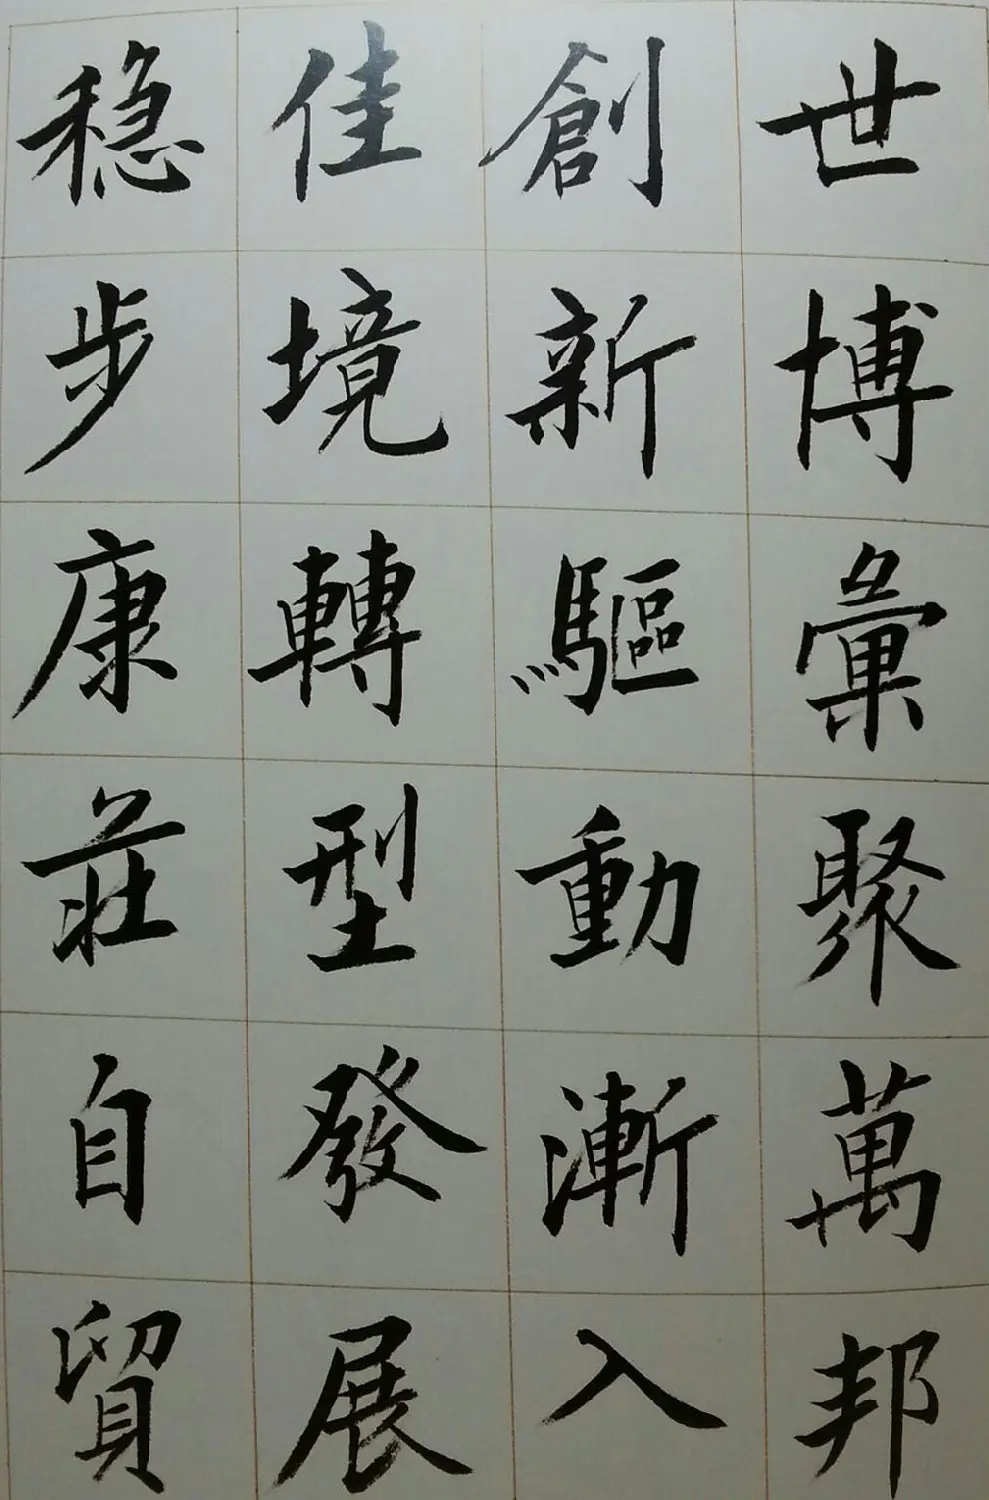 世博彙聚萬邦
創新驅動漸入
佳境轉型發展
稳步康莊自貿